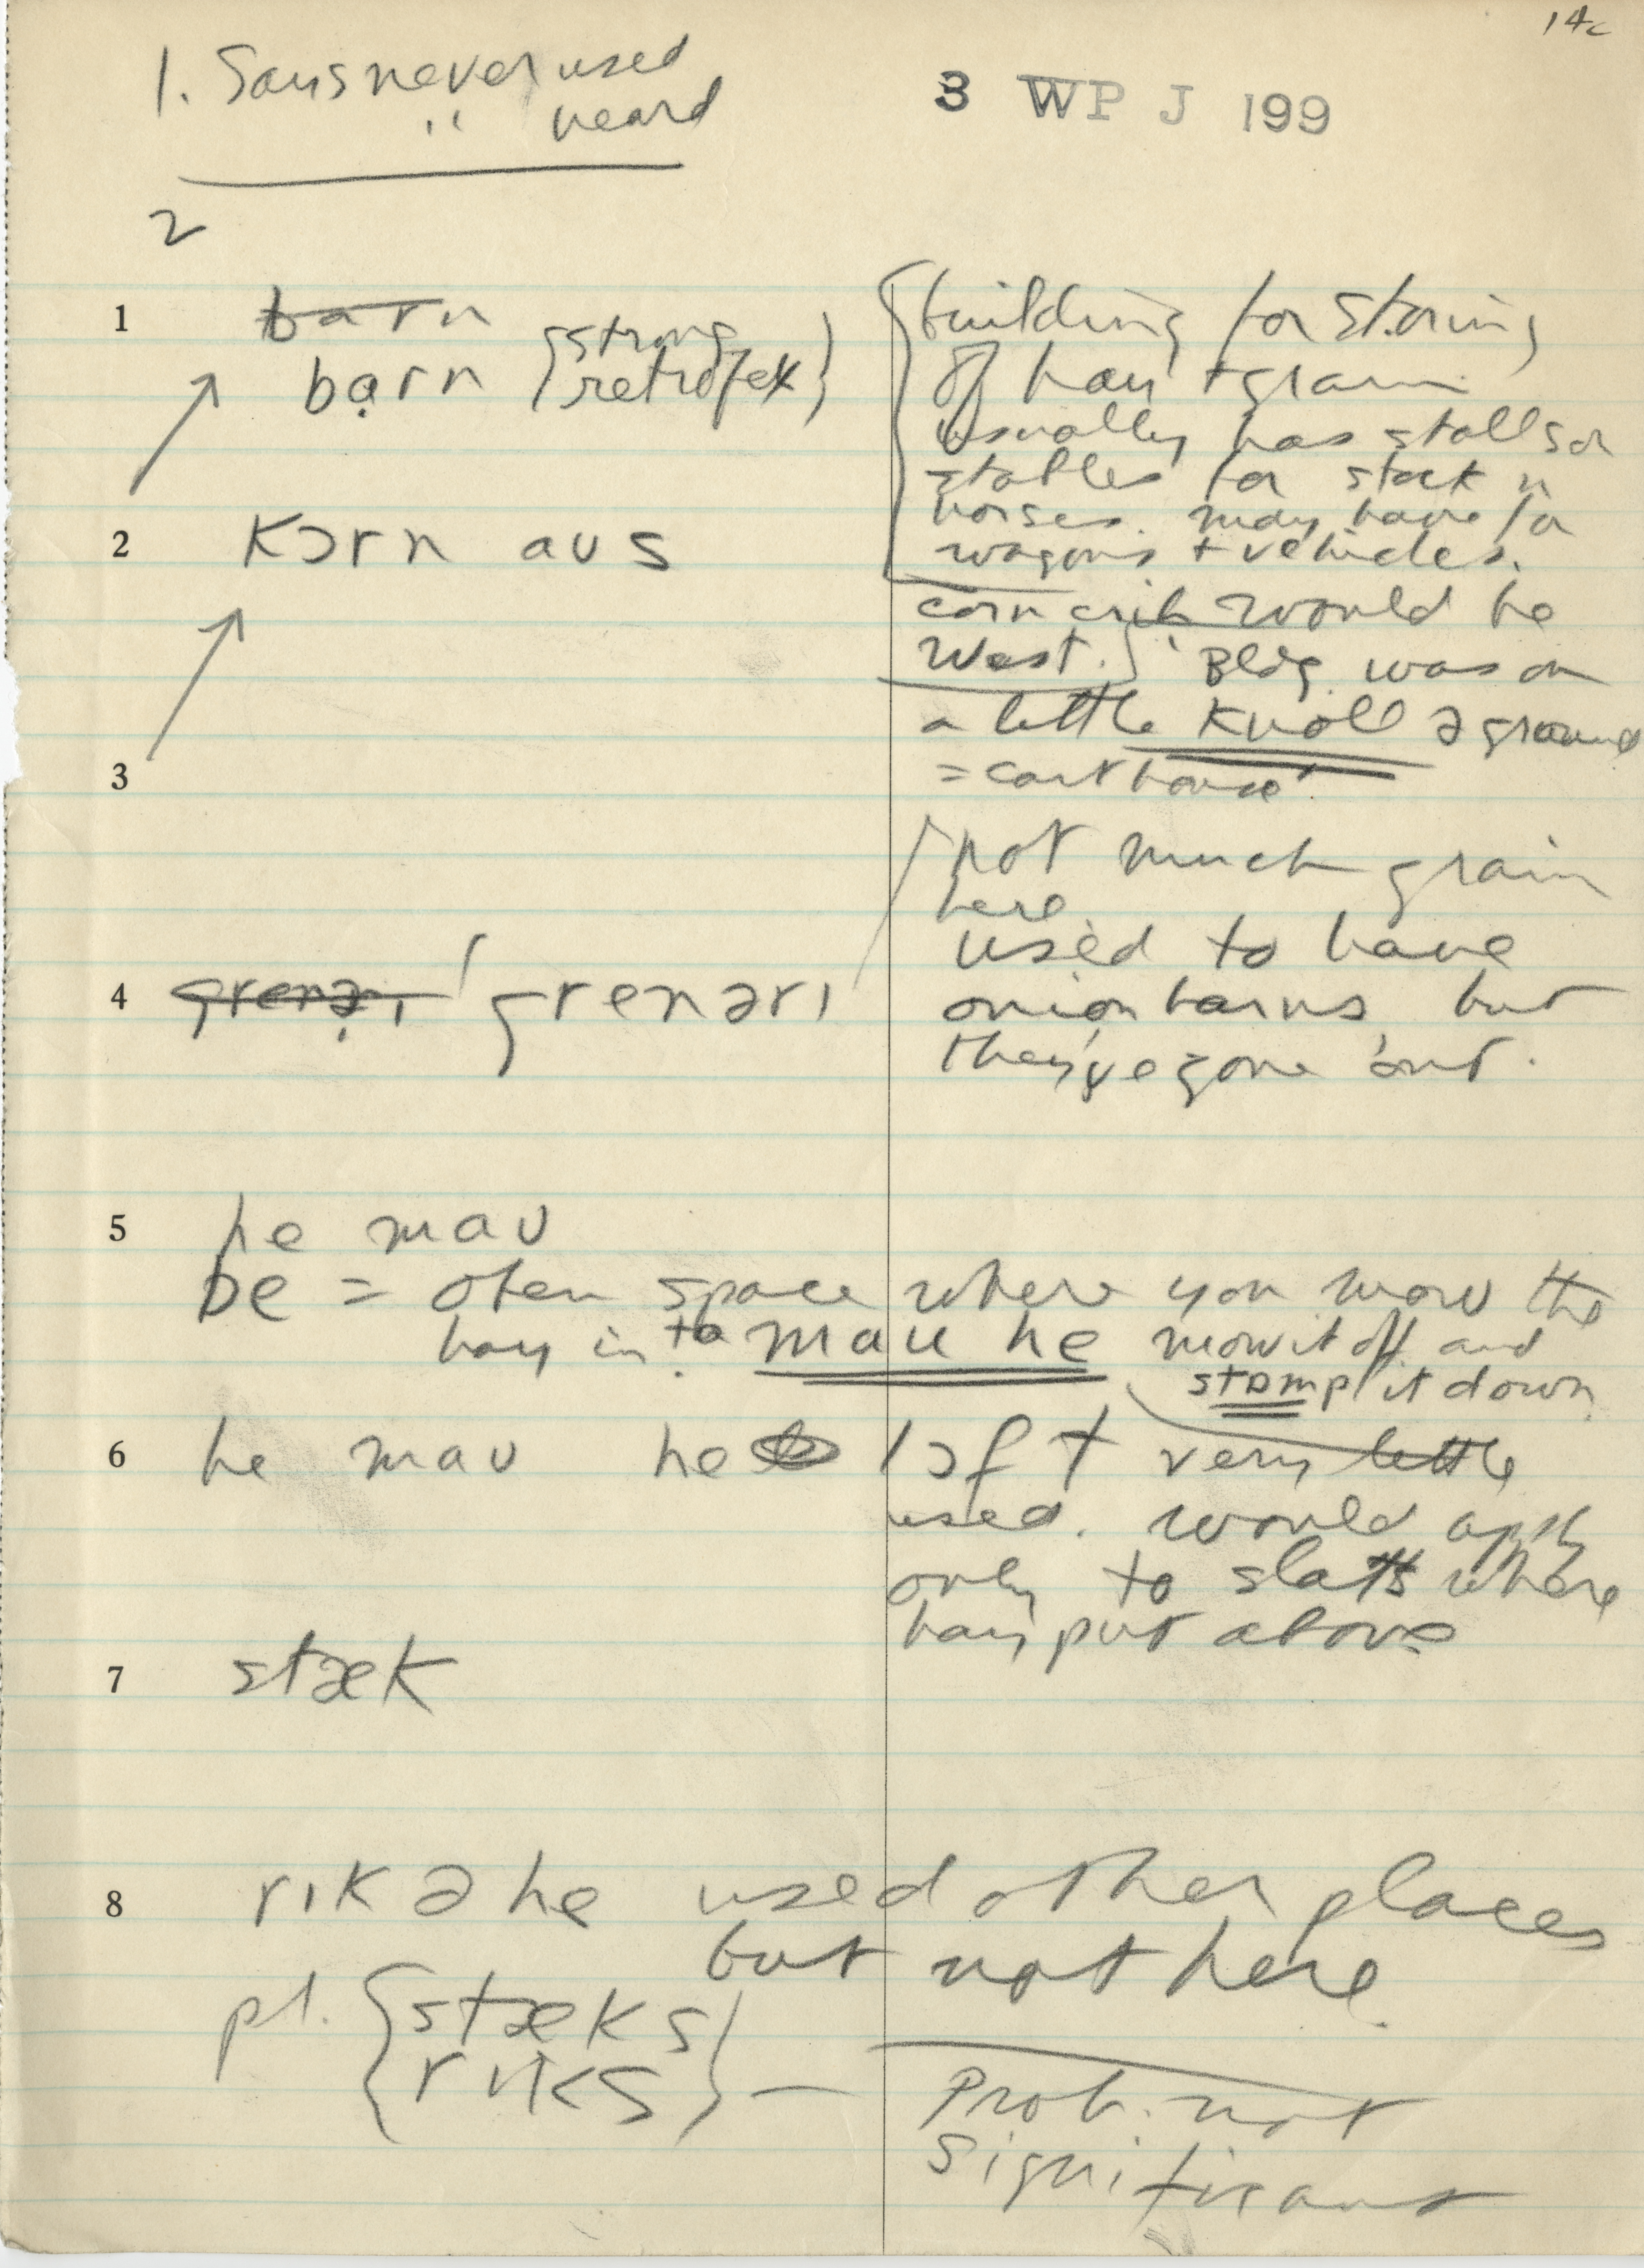 14c
1. Says never used
" heard
3 WP J 199
2
1 barn
bạrn {strong retroflex}
building for storing
of hay + grain
usually has stalls or
stables for stock n
horses. may have for
wagons + vehicles.
2 kɔrn aus
corn crib would be
West. Bldg. was on
a little knoll ə ground
= cart house'
3
not much grain
here
used to have
onion barns but
they've gone out.
4 grenəri grenəri
5 he mau
be = open space where you mow the
hay in to mau he mow it off and
stomp it down
6 he mau he lɔft very little
used. would apply
only to slats where
hay put above
7 stæk
8 rɪk ə he used other places
but not here.
pl. {stæks
rɪks} —
Prob. not
significant